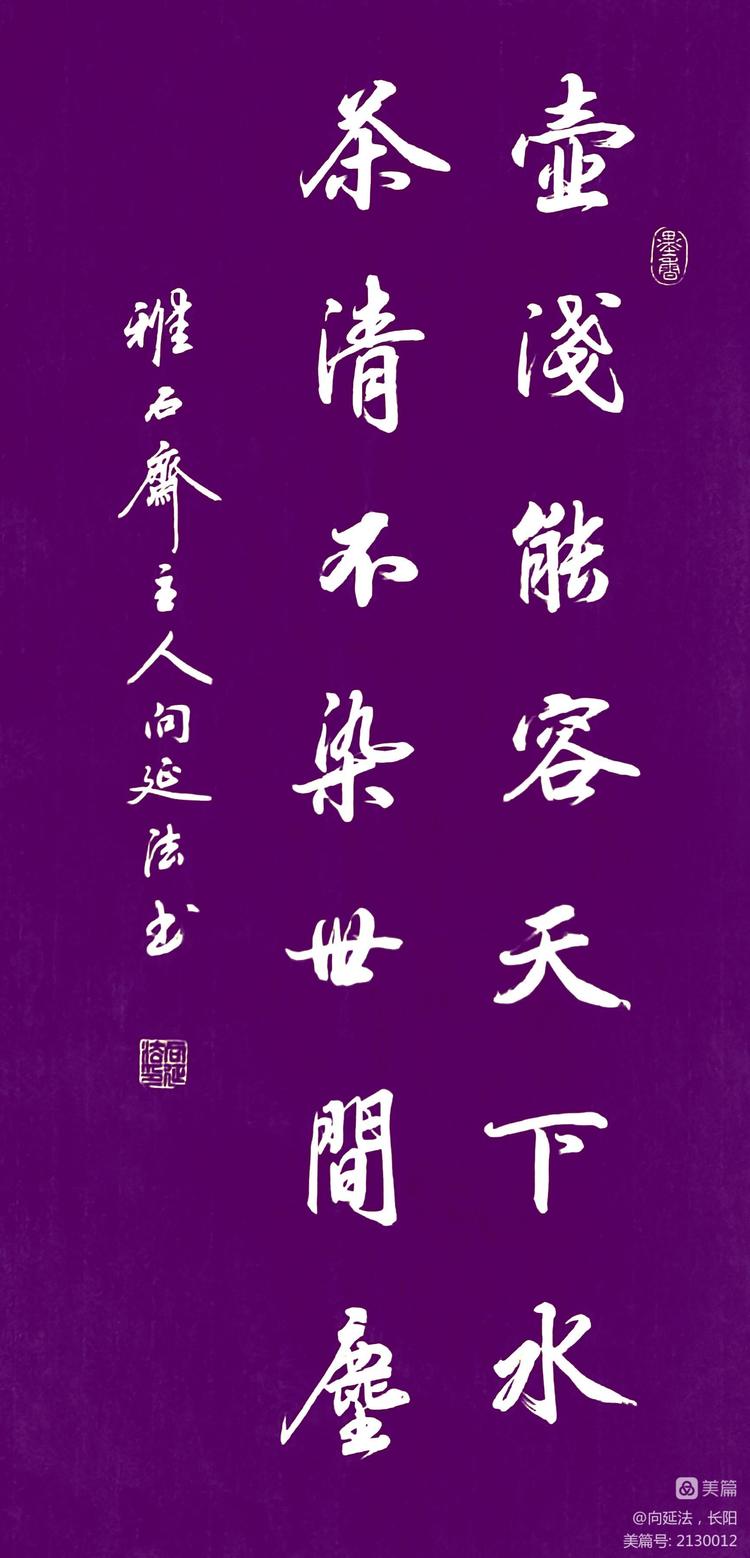 壺淺能容天下水
墨香
茶清不染世間塵
雅石齋主人向延法书
向延法印
美篇
@向延法，长阳
美篇号: 2130012